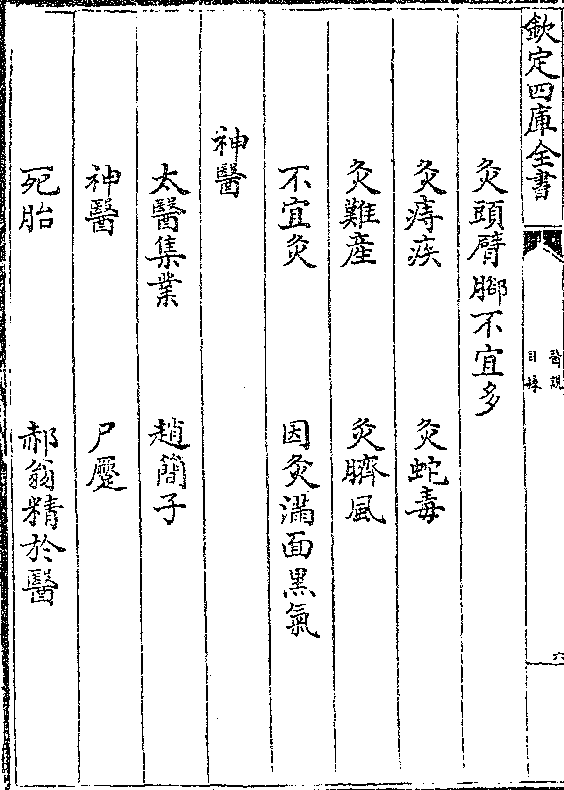 欽定四庫全書
醫說
目錄
六
灸頭臂脚不宜多
灸痔疾 灸蛇毒
灸難產 灸臍風
不宜灸 因灸滿面黒氣
神醫
太醫集業 趙簡子
神醫 尸蹷
死胎 郝翁精於醫